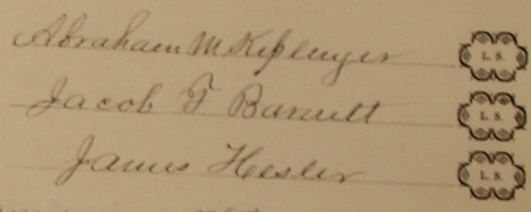 Abraham M Keplinger L. S.
Jacob F Barnett L. S.
James Hesler L. S.